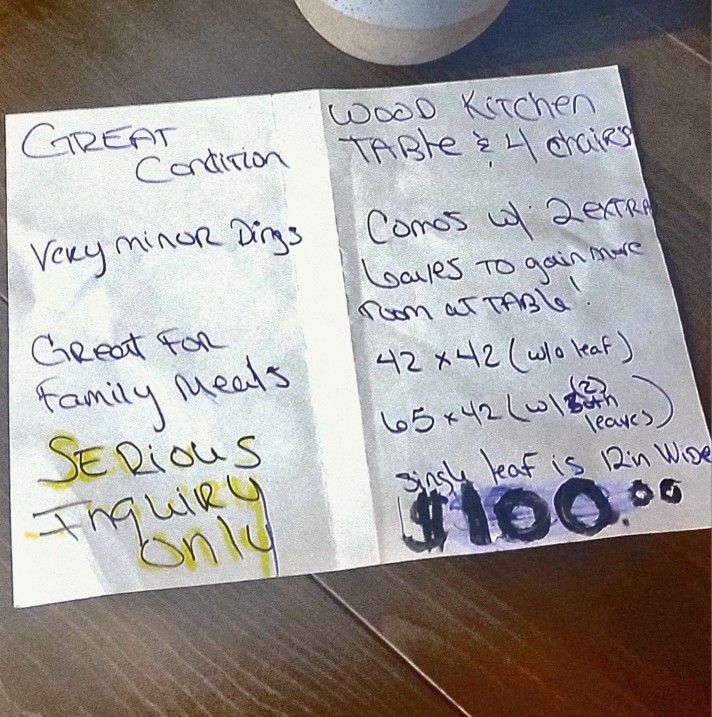 GREAT
Condition
Very minor Dings
Great For
Family Meals
SERIOUS
Inquiry
Only
WOOD Kitchen
TABle & 4 chairs
Comes w/ 2 EXTRA
leaves TO gain more
room at TABle!
42 x 42 (w/o leaf)
65 x 42 (w/ (2) both
leaves)
single leaf is 12in Wide
$100.00